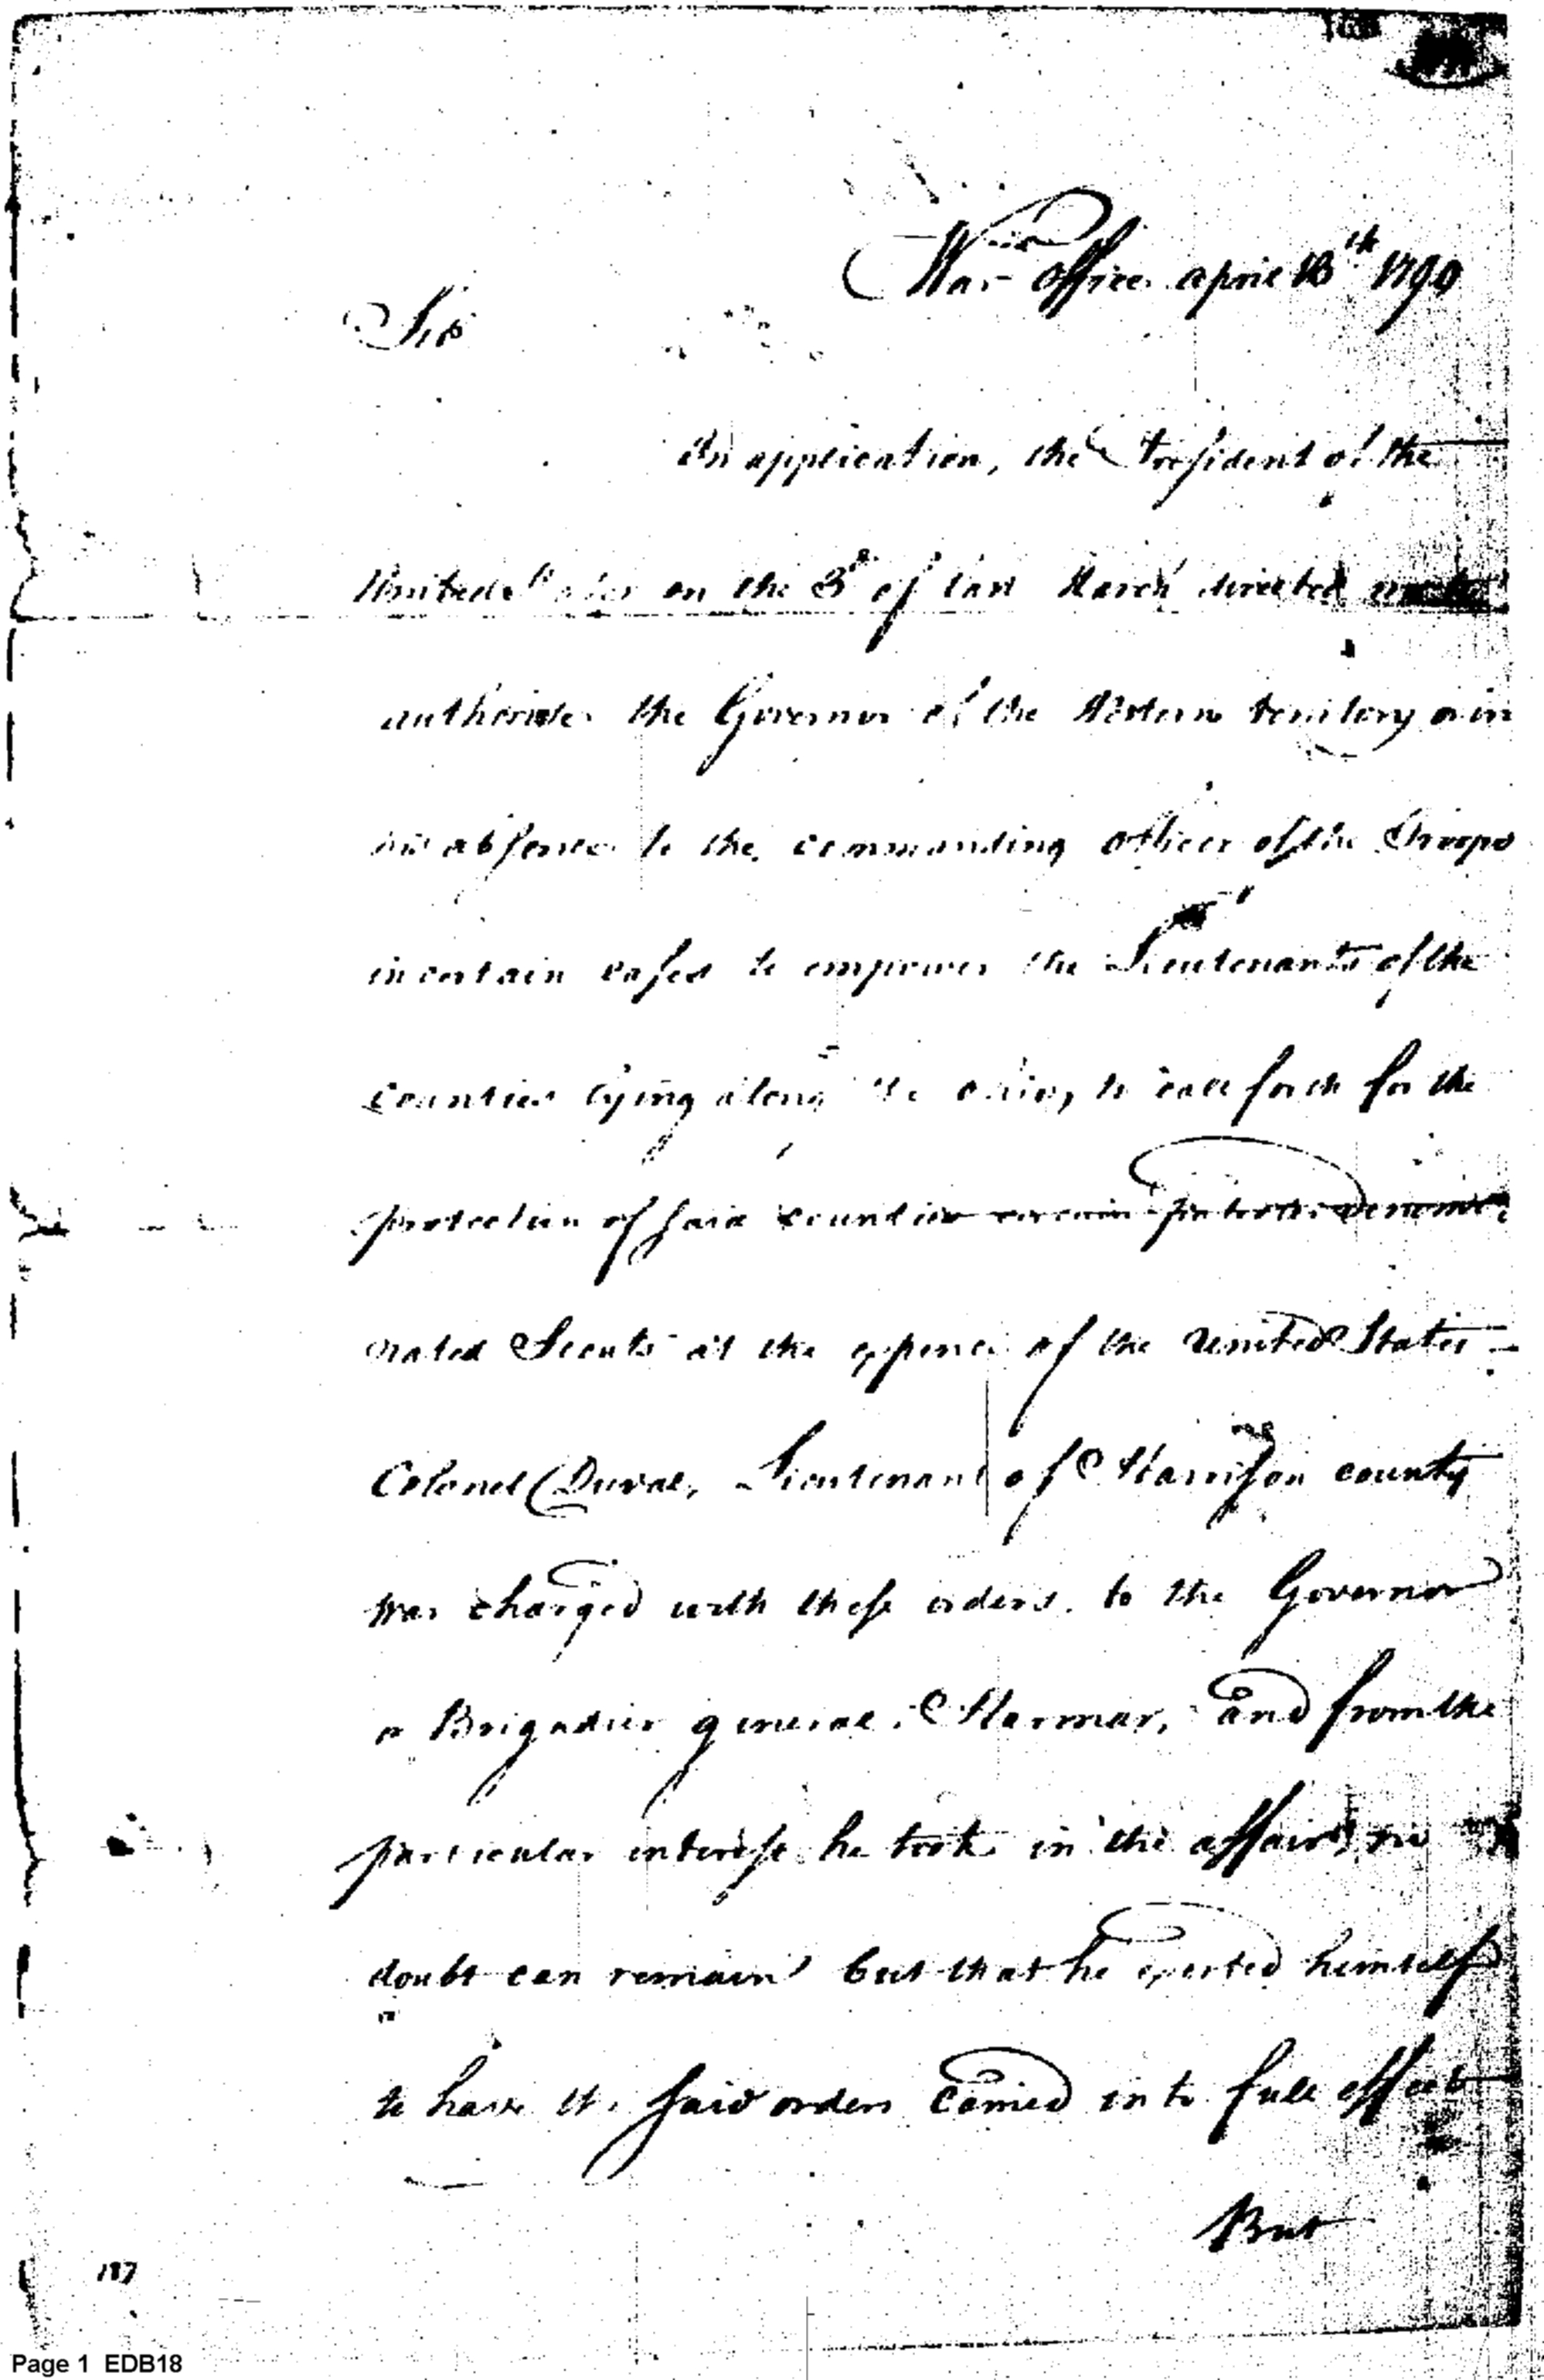 War office april 13th 1790
Sir
On application, the President of the
United States on the 3d of last March directed me to
authorise the Governor of the Western territory or in
his absence to the commanding officer of the Troops
in certain cases to empower the Lieutenants of the
counties lying along the ohio, to call forth for the
protection of said counties certain patroles denomi-
nated Scouts at the expence of the United States —
Colonel Duval, Lieutenant of Harrison county
was charged with these orders to the Governor
or Brigadier general Harmar, and from the
particular interest he took in the affair, no
doubt can remain but that he exerted himself
to have the said orders carried into full effect
But
187
Page 1 EDB18